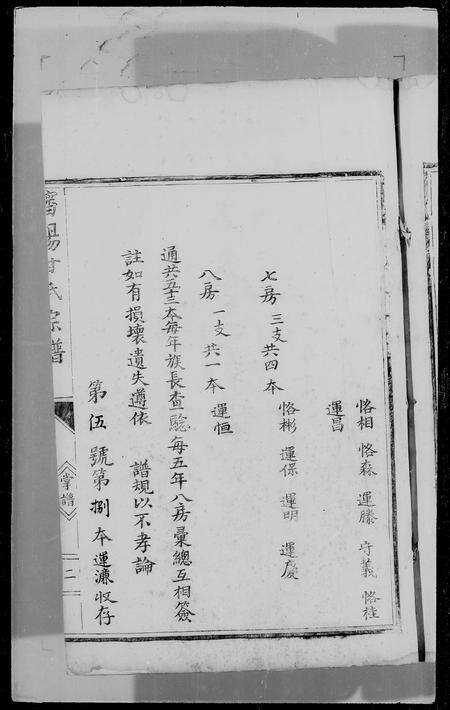 恪相 恪森 運勝 守義 恪桂
運昌
七房 三支共四本 恪彬 運保 運明 運慶
八房 一支共一本 運恒
通共五十三本每年族長查驗每五年八房彙總互相簽
註如有損壞遺失遵依 譜規以不孝論
第伍號第捌本運濂收存
氏宗譜
掌譜
二